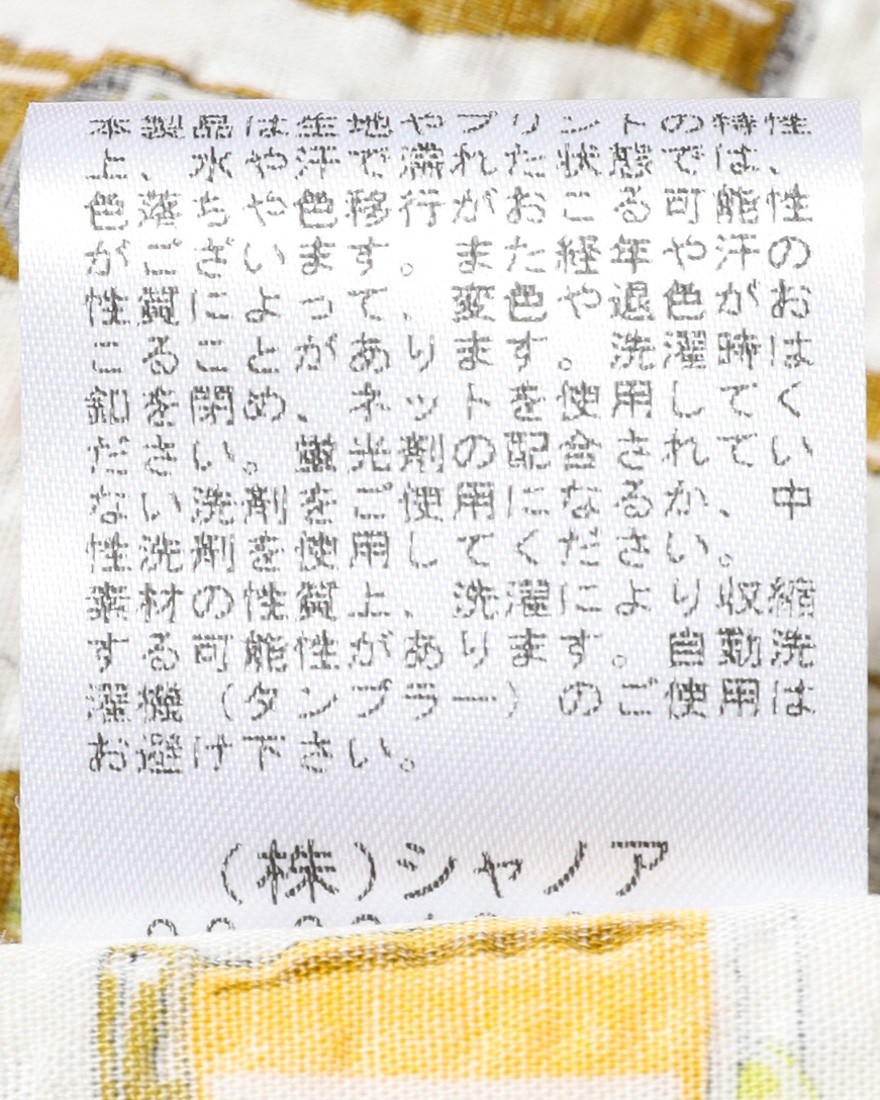 本製品は生地やプリントの特性
上、水や汗で濡れた状態では、
色落ちや色移行がおこる可能性
がございます。また経年や汗の
性質によって、変色や退色がお
こることがあります。洗濯時は
釦を閉め、ネットを使用してく
ださい。蛍光剤の配合されてい
ない洗剤をご使用になるか、中
性洗剤を使用してください。
素材の性質上、洗濯により収縮
する可能性があります。自動洗
濯機（タンブラー）のご使用は
お避け下さい。
（株）シャノア